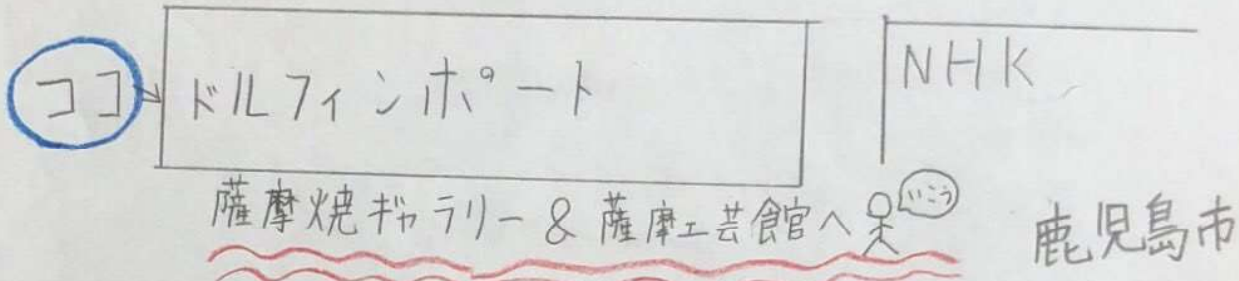 ココ
ドルフィンポート
NHK
いこう
薩摩焼ギャラリー & 薩摩工芸館へ
鹿児島市